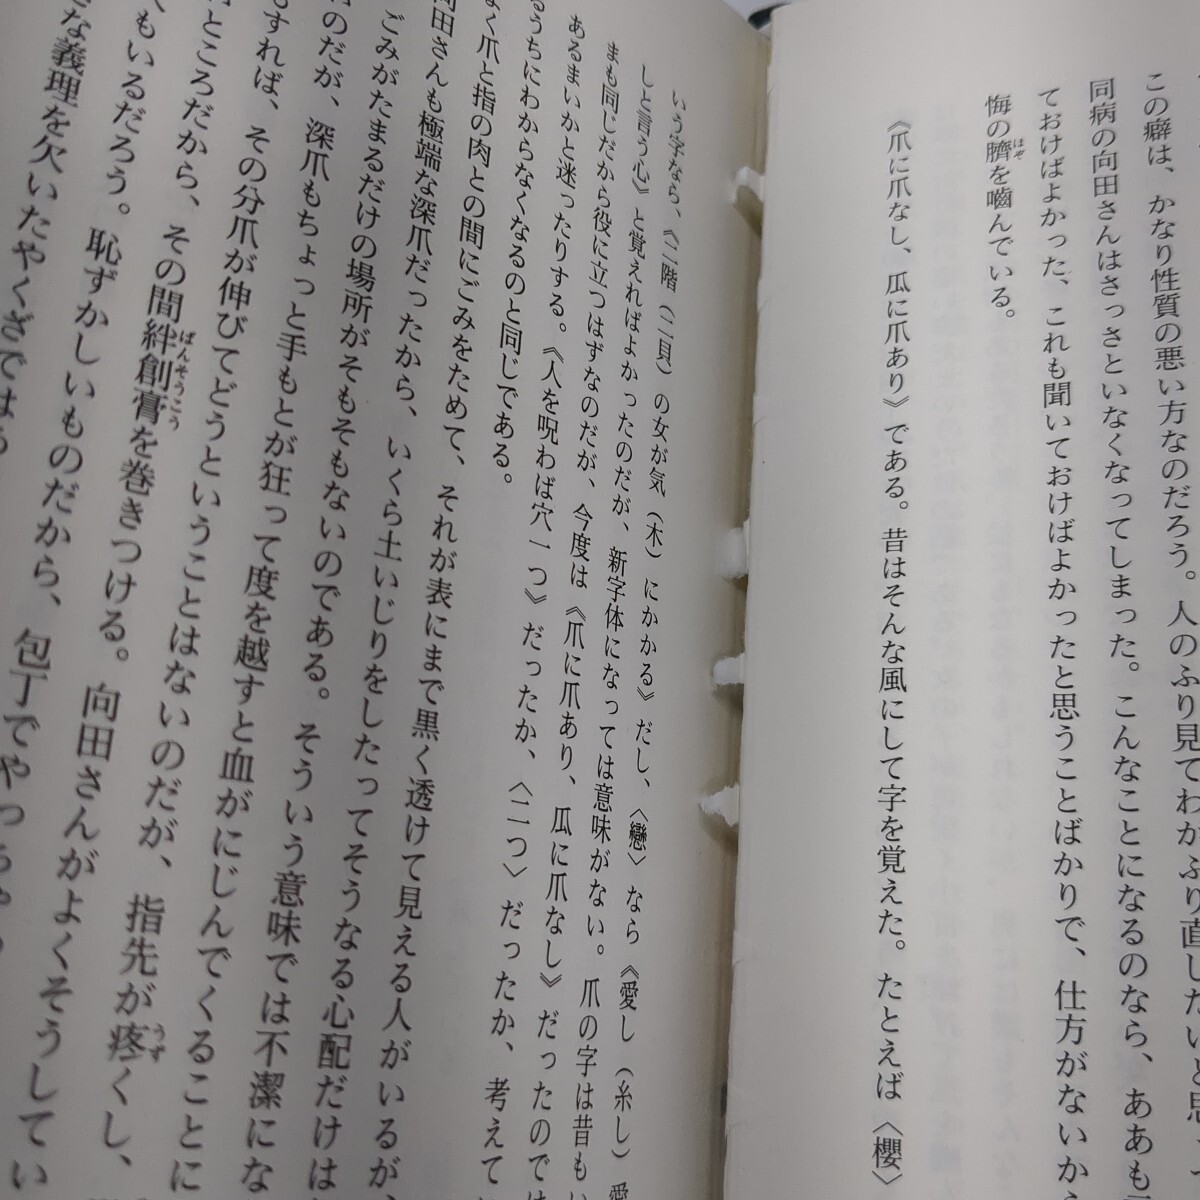 この癖は、かなり性質の悪い方なのだろう。人のふり見てわがふり直したいと思
同病の向田さんはさっさといなくなってしまった。こんなことになるのなら、ああも
ておけばよかった、これも聞いておけばよかったと思うことばかりで、仕方がないか
悔の臍を嚙んでいる。
《爪に爪なし、瓜に爪あり》である。昔はそんな風にして字を覚えた。たとえば〈櫻〉
いう字なら、《二階(二貝)の女が気(木)にかかる》だし、〈戀〉なら《愛し(糸し)愛
しと言う心》と覚えればよかったのだが、新字体になっては意味がない。爪の字は昔もい
まも同じだから役に立つはずなのだが、今度は《爪に爪あり、瓜に爪なし》だったのでは
あるまいかと迷ったりする。《人を呪わば穴一つ》だったか、〈二つ〉だったか、考えて
るうちにわからなくなるのと同じである。
よく爪と指の肉との間にごみをためて、それが表にまで黒く透けて見える人がいるが、
向田さんも極端な深爪だったから、いくら土いじりをしたってそうなる心配だけは
ごみがたまるだけの場所がそもそもないのである。そういう意味では不潔にな
のだが、深爪もちょっと手もとが狂って度を越すと血がにじんでくることに
すれば、その分爪が伸びてどうということはないのだが、指先が疼くし、
ところだから、その間絆創膏を巻きつける。向田さんがよくそうしてい
もいるだろう。恥ずかしいものだから、包丁でやっちゃ
な義理を欠いたやくざでは